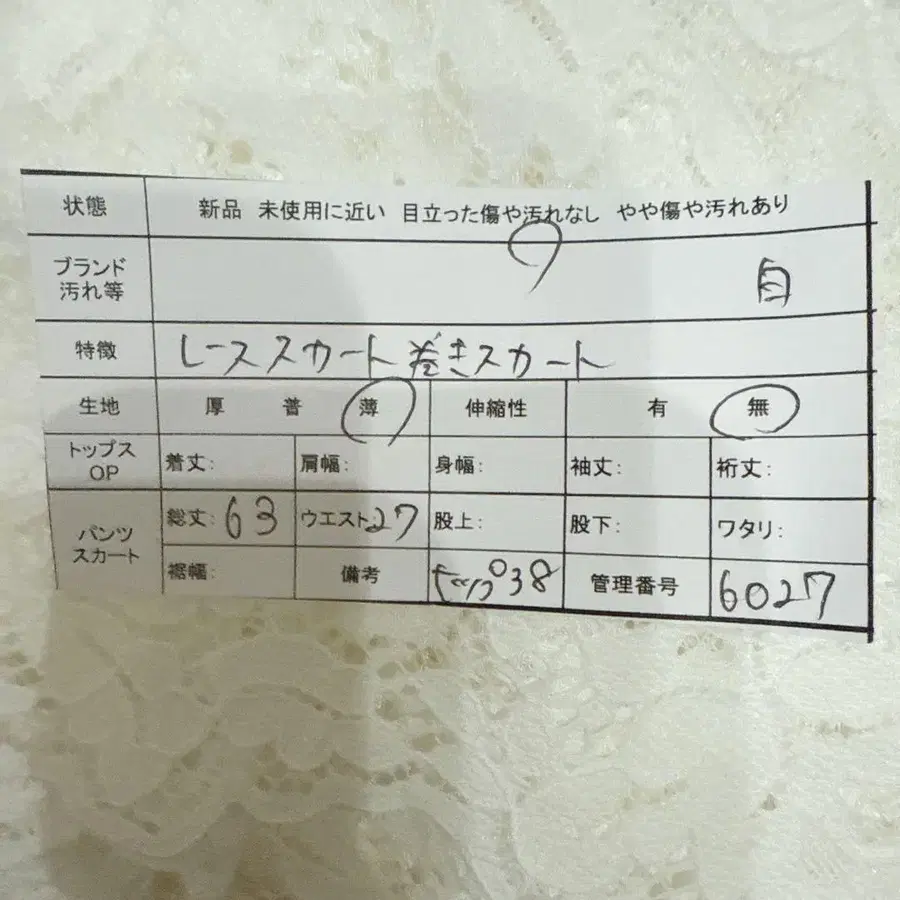 状態 新品 未使用に近い 目立った傷や汚れなし やや傷や汚れあり
ブランド
汚れ等 自
特徴 レーススカート 巻きスカート
生地 厚 普 薄 伸縮性 有 無
トップス
OP 着丈: 肩幅: 身幅: 袖丈: 裄丈:
パンツ
スカート 総丈:63 ウエスト:27 股上: 股下: ワタリ:
裾幅: 備考 ヒップ38 管理番号 6027